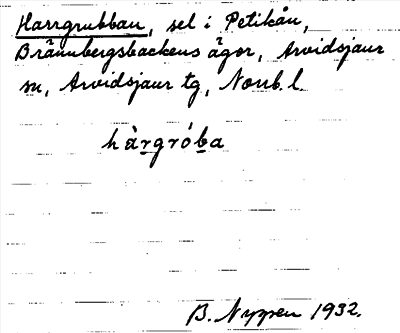 Harrgrubban, sel i Petikån,
Brännbergsbackens ägor, Arvidsjaur
sn, Arvidsjaur tg, Norrb. l.
hàrgróba
B. Nygren 1932.